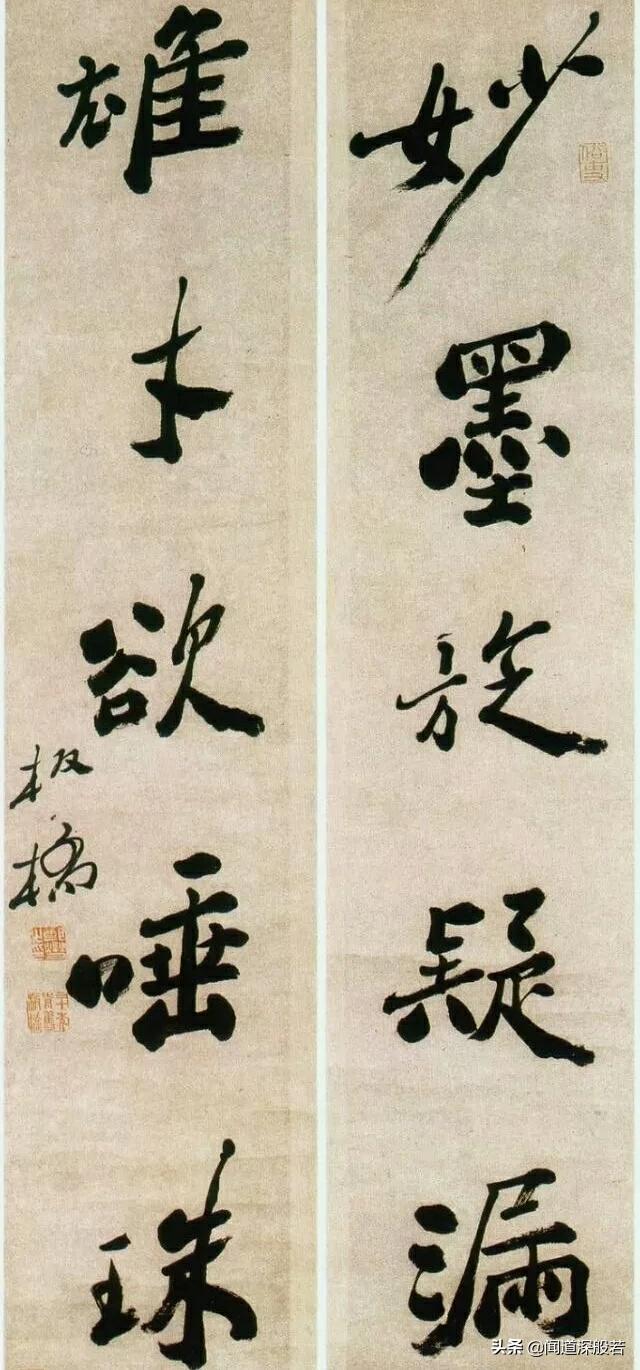 妙墨旋疑漏
俗吏
雄才欲唾珠
板橋
头条 @闻道深般若